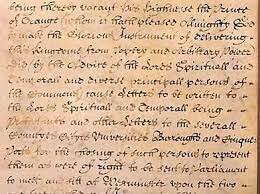 being thereby vacant His Highnesse the Prince
of Orange (whom it hath pleased Almighty God
to make the Glorious Instrument of delivering
this Kingdome from Popery and Arbitrary Power
Did by the Advice of the Lords Spirituall and
Temporall and diverse principall persons of
the Commons cause Letters to be written to
the Lords Spirituall and Temporall being
Protestants and other Letters to the severall
Countyes Cityes Universities Burroughs and Cinque
Ports for the choosing of such persons to represent
them as were of right to be sent to Parliament
to meet and sitt at Westminster upon the two